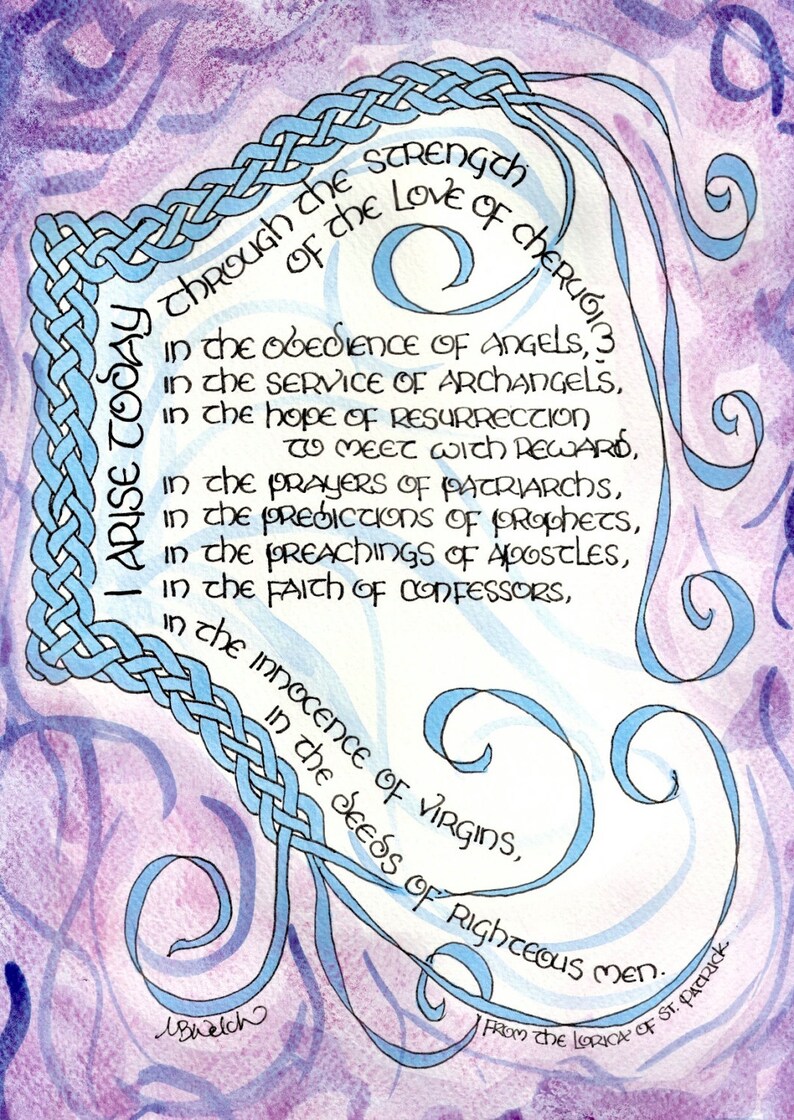 I ARISE TODAY
THROUGH THE STRENGTH
OF THE LOVE OF CHERUBIM
IN THE OBEDIENCE OF ANGELS,
IN THE SERVICE OF ARCHANGELS,
IN THE HOPE OF RESURRECTION
TO MEET WITH REWARD,
IN THE PRAYERS OF PATRIARCHS,
IN THE PREDICTIONS OF PROPHETS,
IN THE PREACHINGS OF APOSTLES,
IN THE FAITH OF CONFESSORS,
IN THE INNOCENCE OF VIRGINS,
IN THE DEEDS OF RIGHTEOUS MEN.
FROM THE LORICA OF ST. PATRICK
MBWelch